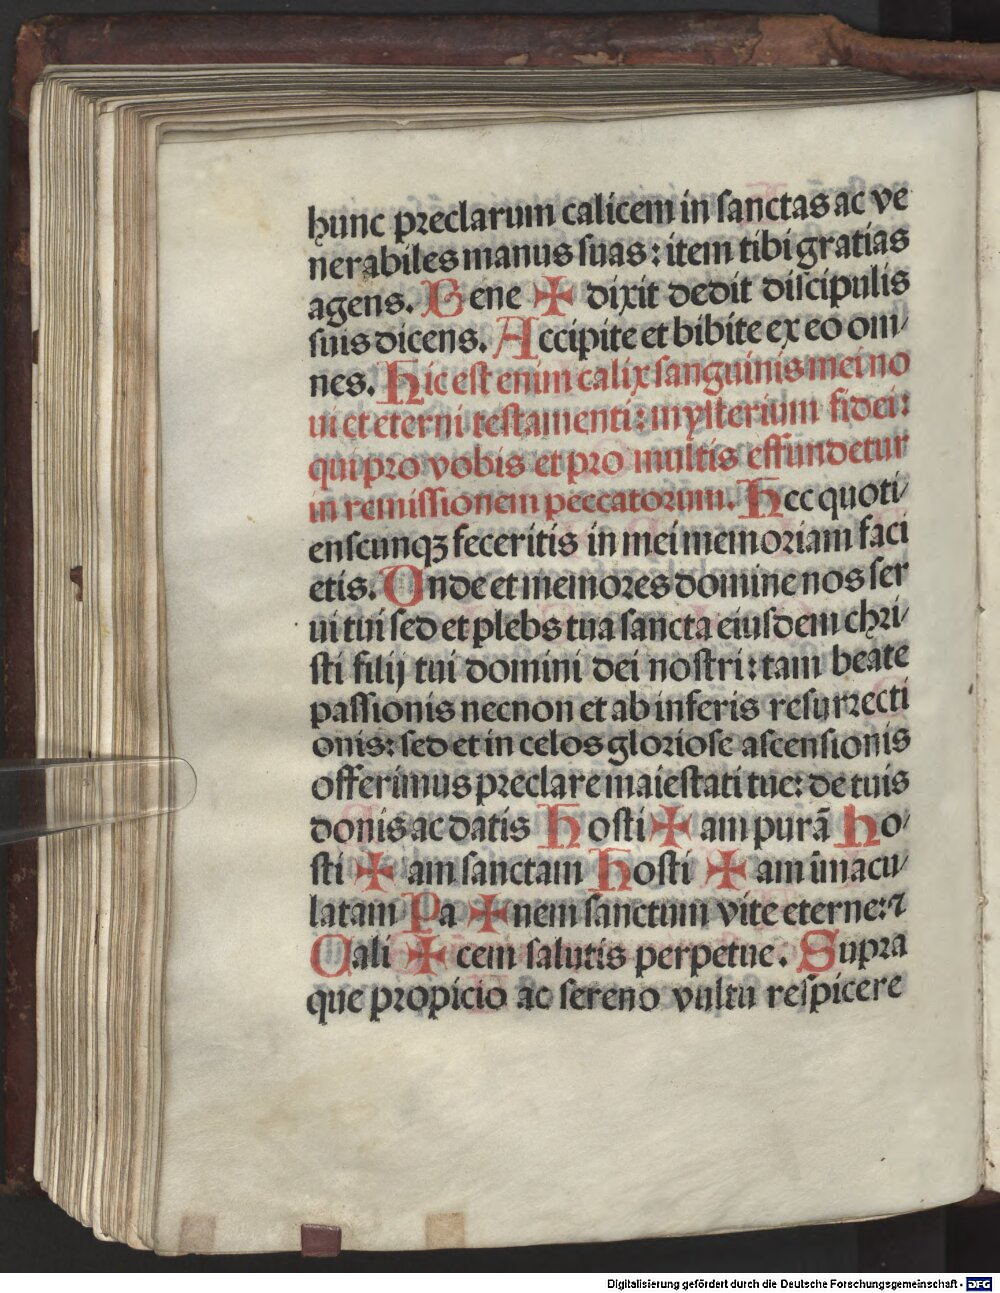 hunc preclarum calicem in sanctas ac ve
nerabiles manus suas: item tibi gratias
agens. Bene ✠ dixit dedit discipulis
suis dicens. Accipite et bibite ex eo om/
nes. Hic est enim calix sanguinis mei no
ui et eterni testamenti: mysterium fidei:
qui pro vobis et pro multis effundetur
in remissionem peccatorum. Hec quoti/
enscunqꝫ feceritis in mei memoriam faci
etis. Unde et memores domine nos ser
ui tui sed et plebs tua sancta eiusdem chri/
sti filij tui domini dei nostri: tam beate
passionis necnon et ab inferis resurrecti
onis: sed et in celos gloriose ascensionis
offerimus preclare maiestati tue: de tuis
donis ac datis Hosti ✠ am purā Ho/
sti ✠ am sanctam Hosti ✠ am īmacu/
latam Pa ✠ nem sanctum vite eterne: ⁊
Cali ✠ cem salutis perpetue. Supra
que propicio ac sereno vultu respicere
Digitalisierung gefördert durch die Deutsche Forschungsgemeinschaft - DFG